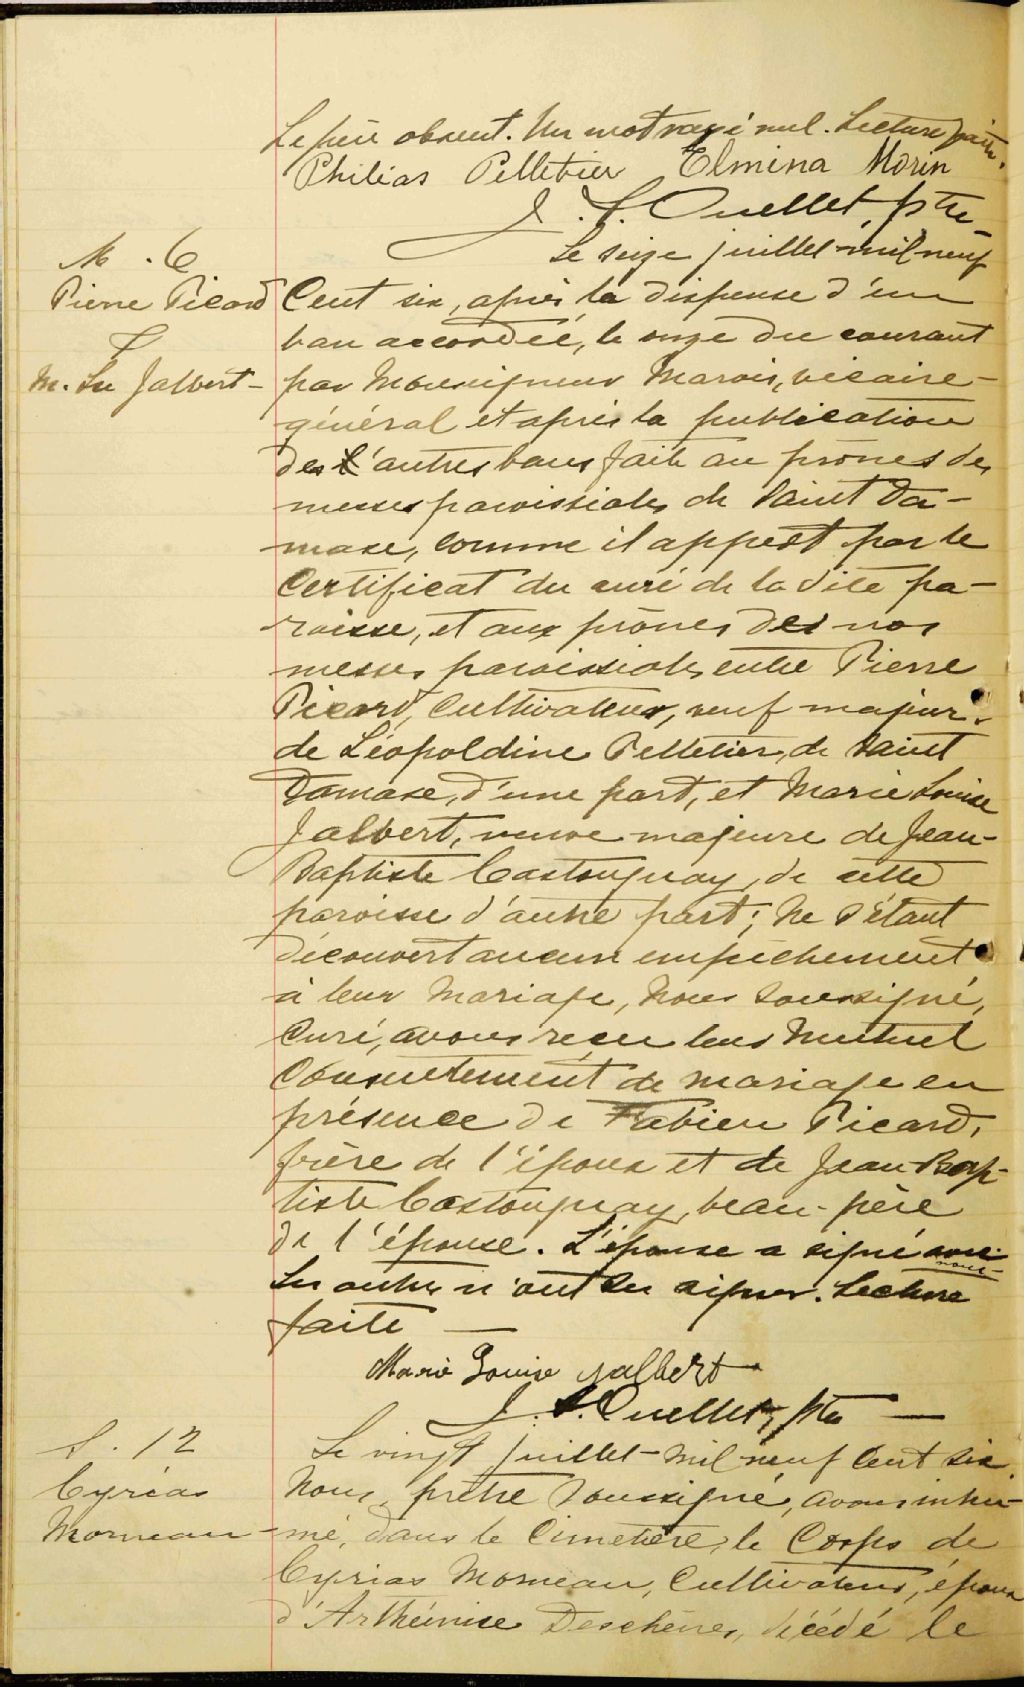 Le père absent. Un mot rayé nul. Lecture faite.
Philias Pelletier Elmina Morin
J. S. Ouellet, ptre
M. 6
Pierre Picard
&
M. Lse Jalbert -
Le seize juillet mil neuf
Cent six, après la dispense d'un
ban accordée, le onze du courant
par Monseigneur Marois, vicaire-
général et après la publication
des autres bans faite au prônes des
messes paroissiales de Saint Da-
mase, comme il appert par le
Certificat du curé de la dite pa-
roisse, et aux prônes de nos
messes paroissiales entre Pierre
Picard, Cultivateur, veuf majeur
de Léopoldine Pelletier, de Saint
Damase, d'une part, et Marie Louise
Jalbert, veuve majeure de Jean-
Baptiste Castonguay, de cette
paroisse d'autre part; Ne s'étant
découvert aucun empêchement
à leur Mariage, Nous soussigné,
Curé, avons reçu leur Mutuel
Consentement de mariage en
présence de Fabien Picard,
frère de l'époux et de Jean-Bap-
tiste Castonguay, beau-père
de l'épouse. L'épouse a signé avec
nous-
Les autres n'ont su signer. Lecture
faite —
Marie Louise Jalbert
J. S. Ouellet, ptre —
S. 12
Cyrias
Morneau -
Le vingt juillet - mil neuf Cent six.
Nous, prêtre soussigné, avons inhu-
mé, dans le Cimetière, le Corps de
Cyrias Morneau, Cultivateur, époux
d'Arthémise Deschênes, décédé le